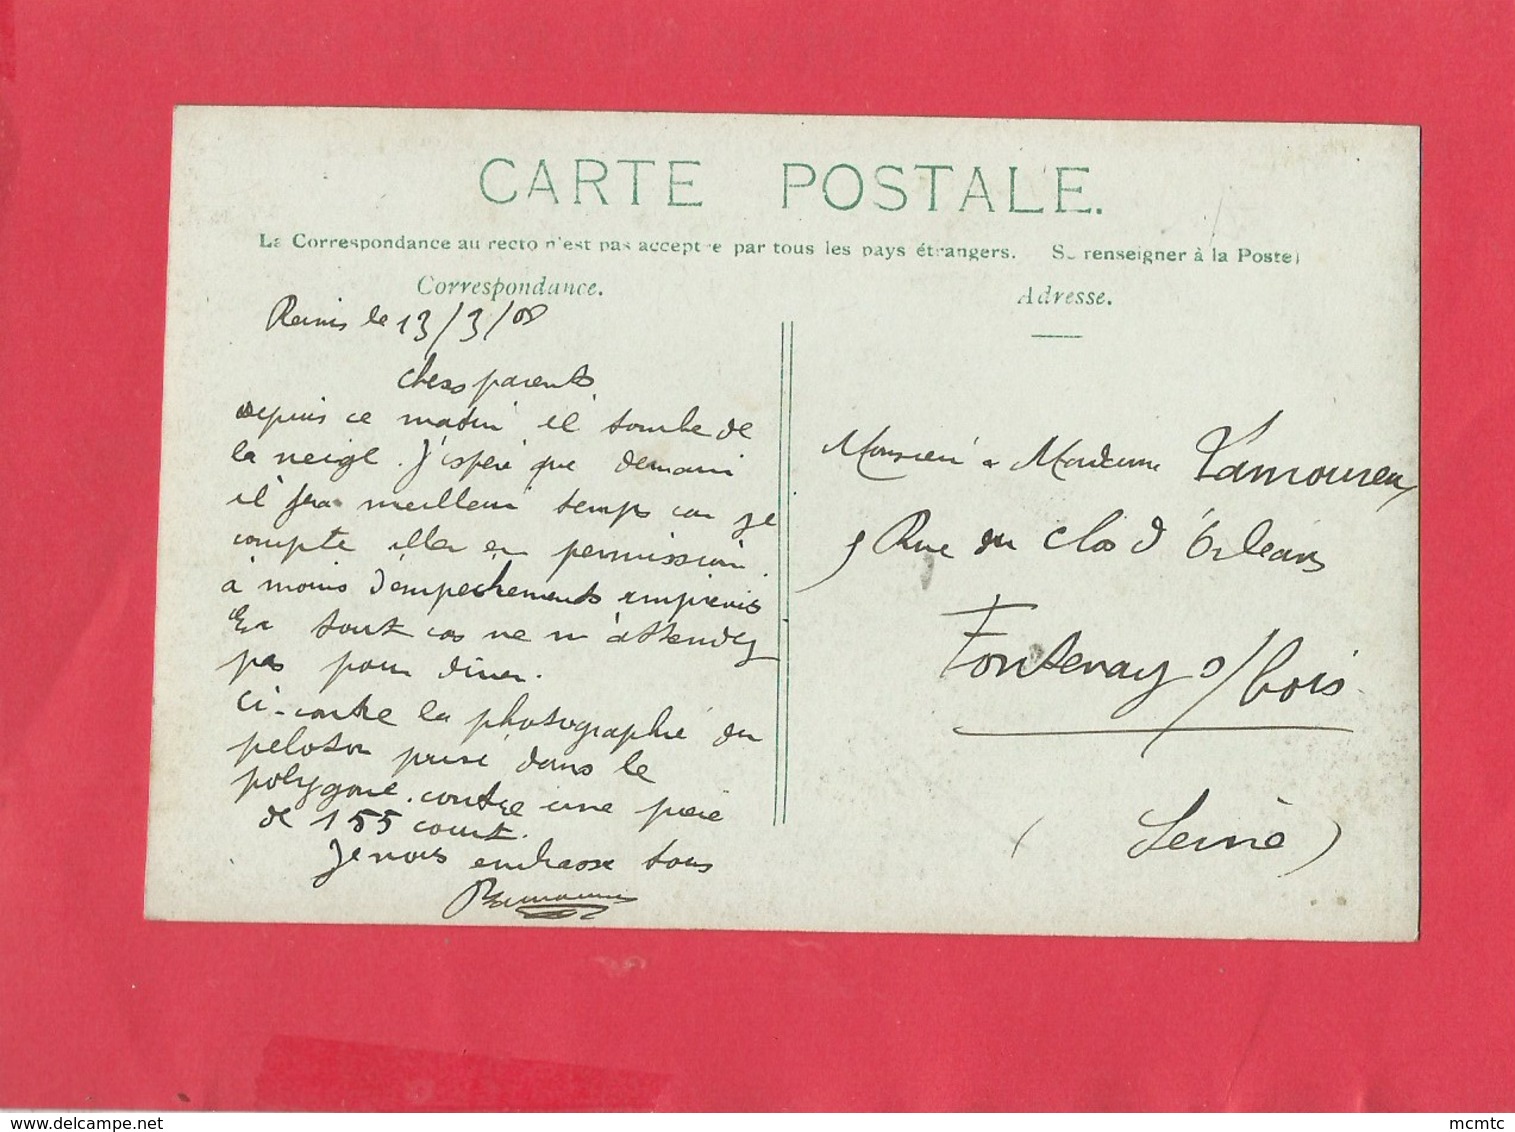 CARTE POSTALE.
La Correspondance au recto n'est pas acceptée par tous les pays étrangers. Se renseigner à la Poste)
Correspondance.
Reims le 13/3/08
chers parents
Depuis ce matin il tombe de
la neige. J'espère que demain
il fera meilleur temps car je
compte aller en permission
à moins d'empêchements imprévus
En tout cas ne m'attendez
pas pour diner.
Ci-contre la photographie du
peloton prise dans le
polygone contre une pièce
de 155 court.
Je vous embrasse tous
Adresse.
Monsieur & Madame Lamoureux
9 Rue du Clos d'Orléans
Fontenay s/bois
(Seine)
www.delcampe.net
mcmtc